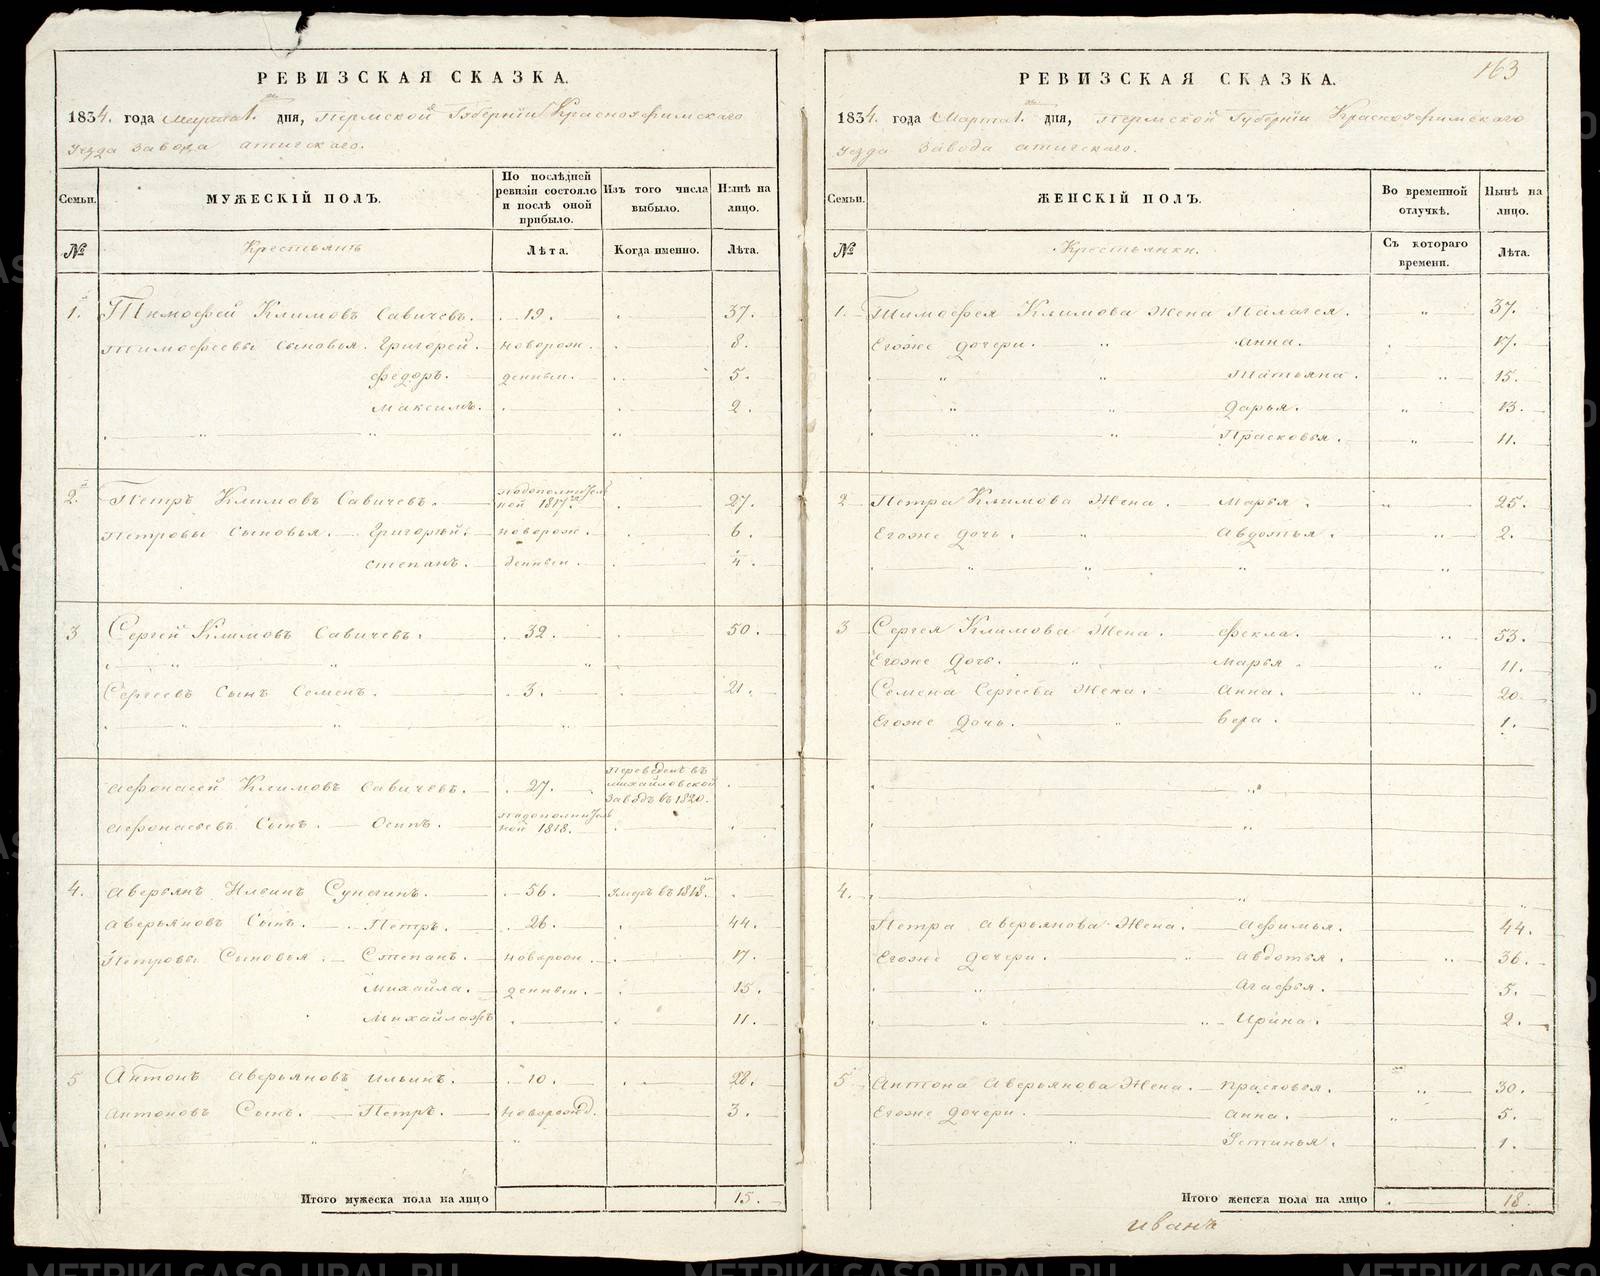 РЕВИЗСКАЯ СКАЗКА.
1834. года Марта 1. дня, Пермской Губернии Красноуфимскаго
уезда завода атигскаго.
Семьи. МУЖЕСКІЙ ПОЛЪ. По послѣдней ревизіи состояло и послѣ оной прибыло. Изъ того числа выбыло. Нынѣ на лицо.
№ Крестьянъ Лѣта. Когда именно. Лѣта.
1. Тимофей Климовъ Савичевъ. 19. 37.
Тимофеевы сыновья. Григорей. новорож. 8.
федоръ. денныи. 5.
Максимъ. 2.
2. Петръ Климовъ Савичевъ. ной 1817. 27.
Петровы Сыновья. Григорый. новорож. 6.
степанъ. денныи. 4.
3 Сергей Климовъ Савичевъ. 32. 50.
Сергеевъ Сынъ Семенъ. 3. 21.
афонасей Климовъ Савичевъ. 27. переведенъ въ михайловской заводъ въ 1820.
афонасьевъ Сынъ. Осипъ. ной 1818.
4. аверьянъ Ильинъ 56. умеръ въ 1818.
аверьяновъ Сынъ. Петръ. 26. 44.
Петровы Сыновья. Степанъ. новорож. 17.
михайла. денныи. 15.
михайлажъ 11.
5 Антонъ аверьяновъ ильинъ. 10. 28.
антоновъ Сынъ. Петръ. новорожд. 3.
Итого мужеска пола на лицо 15.
163
РЕВИЗСКАЯ СКАЗКА.
1834. года Марта 1. дня, Пермской Губерніи Красноуфимскаго
уезда завода атигскаго.
Семьи. ЖЕНСКІЙ ПОЛЪ. Во временной отлучкѣ. Нынѣ на лицо.
№ Крестьянки. Съ котораго времени. Лѣта.
1. Тимофея Климова жена Палагея. 37.
Егоже дочери. анна. 17.
Татьяна. 15.
дарья. 13.
Прасковья. 11.
2 Петра Климова жена. марья. 25.
Егоже дочь. авдотья. 2.
3 Сергея Климова жена. фекла. 53.
Егоже дочь. марья. 11.
Семена Сергеева жена. анна. 20.
Егоже дочь. вера. 1.
4.
Петра аверьянова жена. афимья. 44.
Егоже дочери. авдотья. 36.
агафья. 5.
Ирина. 2.
5 антона аверьянова жена. прасковья. 30.
Егоже дочери. анна. 5.
Устинья. 1.
Итого женска пола на лицо 18.
иванъ
METRIKI.GASO-URAL.RU
METRIKI.GASO-URAL.RU